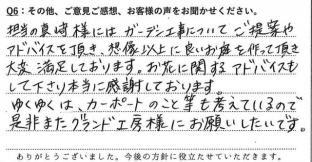 Q6:その他、ご意見ご感想、お客様の声をお聞かせください。
担当の真崎様には ガーデン工事について ご提案や
アドバイスを頂き、想像以上に良いお庭を作って頂き
大変満足しております。お花に関するアドバイスも
して下さり本当に感謝しております。
ゆくゆくは、カーポートのこと等も考えているので
是非またグランド工房様にお願いしたいです。
ありがとうございました。今後の方針に役立たせていただきます。